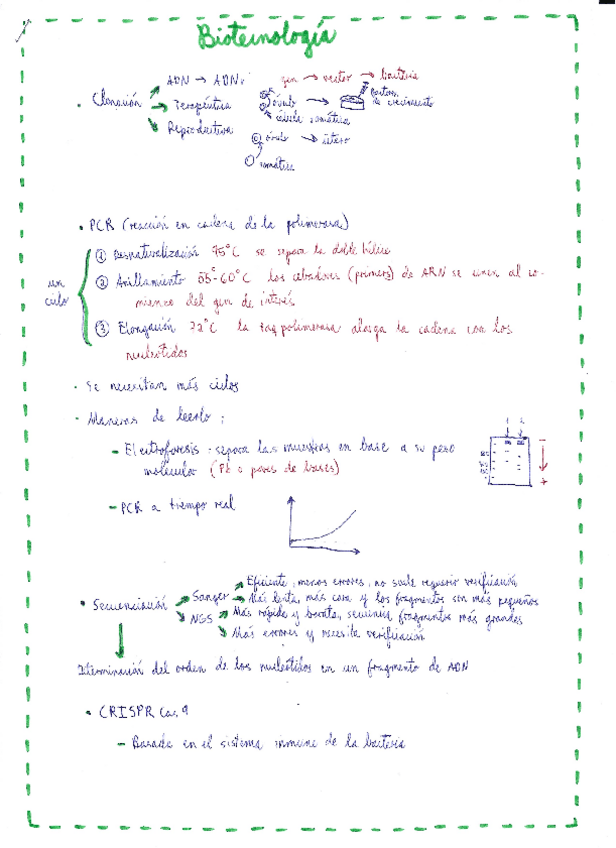 Biotecnología
• Clonación
ADN → ADNr gen → vector → bacteria
Terapéutica óvulo → factores de crecimiento
célula somática
Reproductiva óvulo → útero
somática
• PCR (reacción en cadena de la polimerasa)
un ciclo
① Desnaturalización 95°C se separa la doble hélice
② Anillamiento 55°-60°C los cebadores (primers) de ARN se unen al co-
mienzo del gen de interés
③ Elongación 72°C la taq polimerasa alarga la cadena con los
nucleótidos
• Se necesitan más ciclos
• Maneras de leerlo:
- Electroforesis: separa las muestras en base a su peso
molecular (Pb o pares de bases)
1 2
- +
- PCR a tiempo real
• Secuenciación
Sanger
Eficiente, menos errores, no suele requerir verificación
Más lenta, más cara y los fragmentos son más pequeños
NGS
Más rápida y barata, secuencia fragmentos más grandes
Más errores y necesita verificación
Determinación del orden de los nucleótidos en un fragmento de ADN
• CRISPR Cas 9
- Basada en el sistema inmune de la bacteria